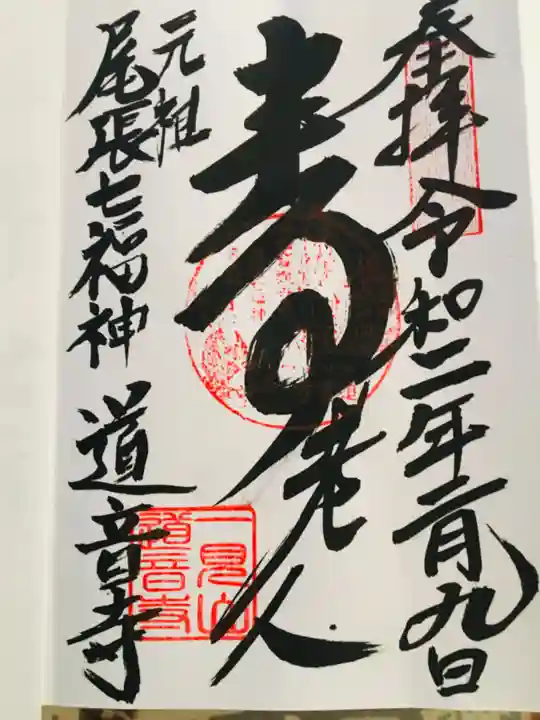 奉拝 令和二年二月九日
寿老人
元祖
尾張七福神 道音寺
一見山
道音寺